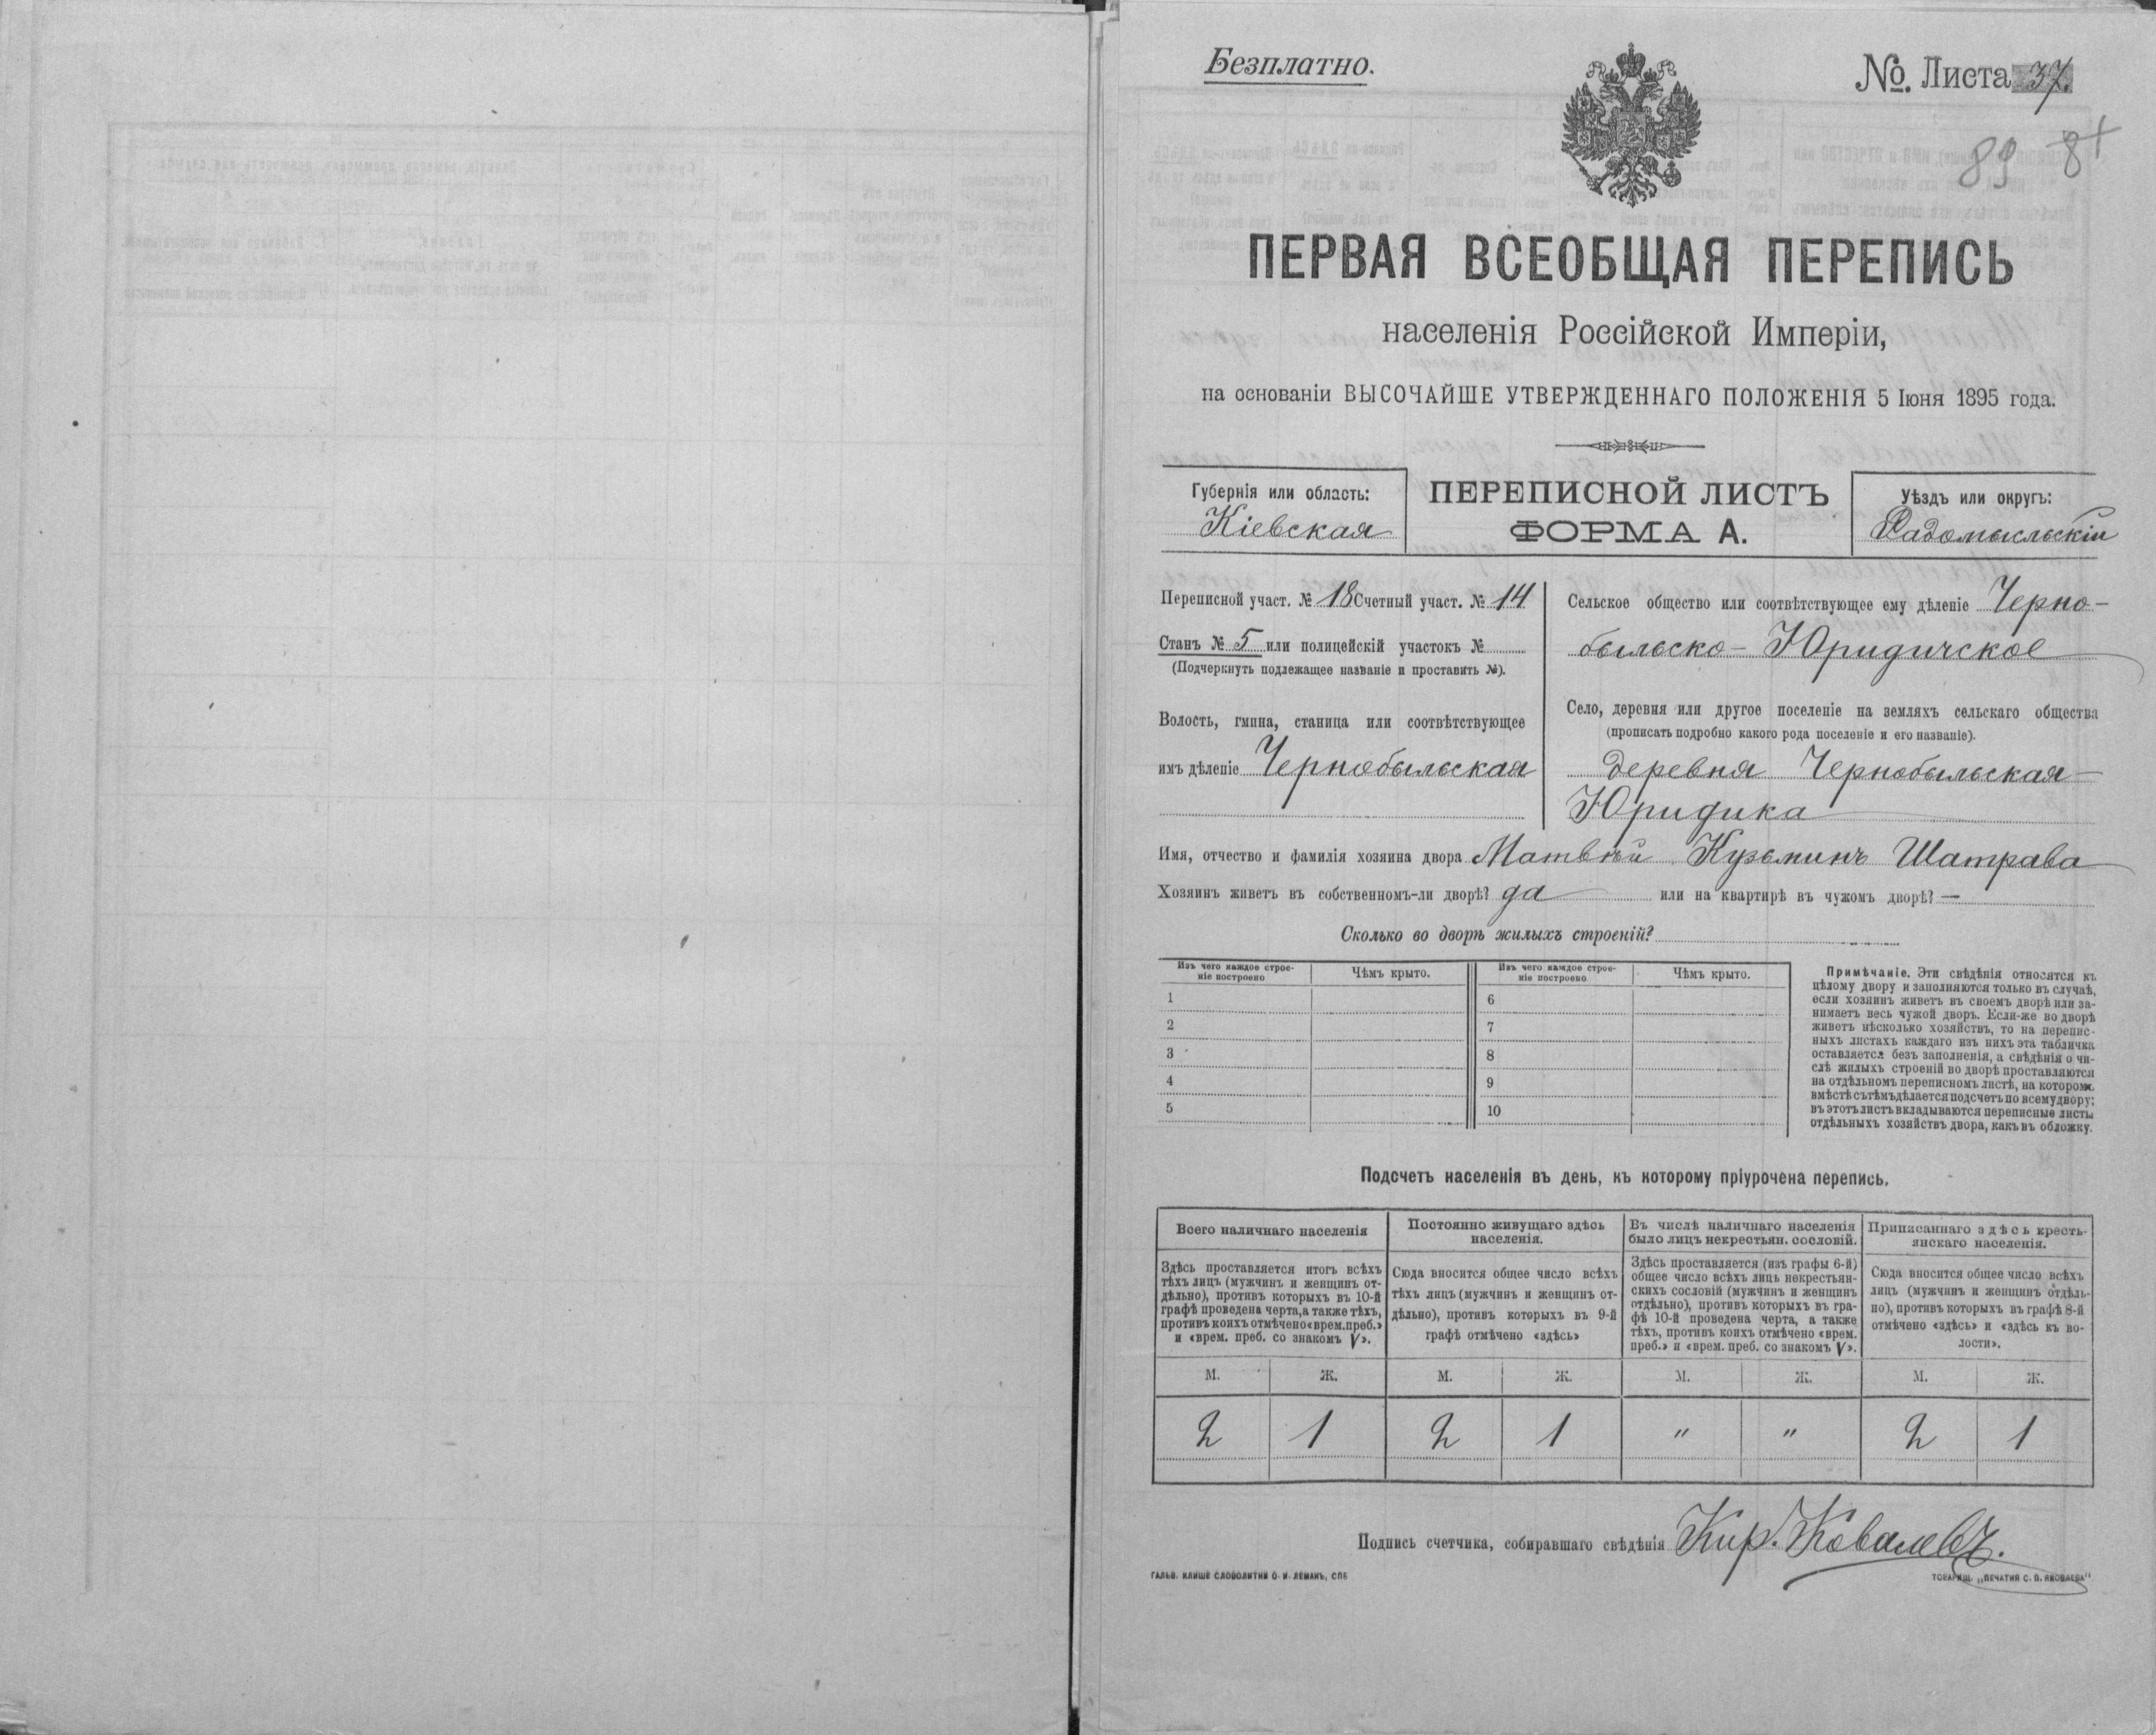 Безплатно.
№. Листа 37.
89 81
ПЕРВАЯ ВСЕОБЩАЯ ПЕРЕПИСЬ
населенія Россійской Имперіи,
на основаніи ВЫСОЧАЙШЕ УТВЕРЖДЕННАГО ПОЛОЖЕНІЯ 5 Іюня 1895 года.
Губернія или область:
Кіевская
ПЕРЕПИСНОЙ ЛИСТЪ
ФОРМА А.
Уѣздъ или округъ:
Радомысльскій
Переписной участ. № 18 Счетный участ. № 14
Станъ № 5 или полицейскій участокъ №
(Подчеркнуть подлежащее названіе и проставить №).
Волость, гмина, станица или соотвѣтствующее
имъ дѣленіе Чернобыльская
Сельское общество или соотвѣтствующее ему дѣленіе Черно-
быльско-Юридическое
Село, деревня или другое поселеніе на земляхъ сельскаго общества
(прописать подробно какого рода поселеніе и его названіе).
деревня Чернобыльская-
Юридика
Имя, отчество и фамилія хозяина двора Матвѣй Кузьминъ Шатрава
Хозяинъ живетъ въ собственномъ-ли дворѣ? да или на квартирѣ въ чужомъ дворѣ? —
Сколько во дворѣ жилыхъ строеній?
Изъ чего каждое строе-
ніе построено
Чѣмъ крыто.
Изъ чего каждое строе-
ніе построено
Чѣмъ крыто.
1 6
2 7
3 8
4 9
5 10
Примѣчаніе. Эти свѣдѣнія относятся къ
цѣлому двору и заполняются только въ случаѣ,
если хозяинъ живетъ въ своемъ дворѣ или за-
нимаетъ весь чужой дворъ. Если-же во дворѣ
живетъ нѣсколько хозяйствъ, то на перепис-
ныхъ листахъ каждаго изъ нихъ эта табличка
оставляется безъ заполненія, а свѣдѣнія о чи-
слѣ жилыхъ строеній во дворѣ проставляются
на отдѣльномъ переписномъ листѣ, на которомъ
вмѣстѣ съ тѣмъ дѣлается подсчетъ по всему двору;
въ этотъ листъ вкладываются переписные листы
отдѣльныхъ хозяйствъ двора, какъ въ обложку.
Подсчетъ населенія въ день, къ которому пріурочена перепись.
Всего наличнаго населенія
Здѣсь проставляется итогъ всѣхъ
тѣхъ лицъ (мужчинъ и женщинъ от-
дѣльно), противъ которыхъ въ 10-й
графѣ проведена черта, а также тѣхъ,
противъ коихъ отмѣчено «врем. преб.»
и «врем. преб. со знакомъ V».
Постоянно живущаго здѣсь
населенія.
Сюда вносится общее число всѣхъ
тѣхъ лицъ (мужчинъ и женщинъ от-
дѣльно), противъ которыхъ въ 9-й
графѣ отмѣчено «здѣсь»
Въ числѣ наличнаго населенія
было лицъ некрестьян. сословій.
Здѣсь проставляется (изъ графы 6-й)
общее число всѣхъ лицъ некрестьян-
скихъ сословій (мужчинъ и женщинъ
отдѣльно), противъ которыхъ въ гра-
фѣ 10-й проведена черта, а также
тѣхъ, противъ коихъ отмѣчено «врем.
преб.» и «врем. преб. со знакомъ V».
Приписаннаго здѣсь кресть-
янскаго населенія.
Сюда вносится общее число всѣхъ
лицъ (мужчинъ и женщинъ отдѣль-
но), противъ которыхъ въ графѣ 8-й
отмѣчено «здѣсь» и «здѣсь къ во-
лости».
М. Ж. М. Ж. М. Ж. М. Ж.
2 1 2 1 " " 2 1
Подпись счетчика, собиравшаго свѣдѣнія Кир. Ковалевъ.
ГАЛЬВ. КЛИШЕ СЛОВОЛИТНИ О. И. ЛЕМАНЪ, СПБ
ТОВАРИЩ. „ПЕЧАТНЯ С. П. ЯКОВЛЕВА"